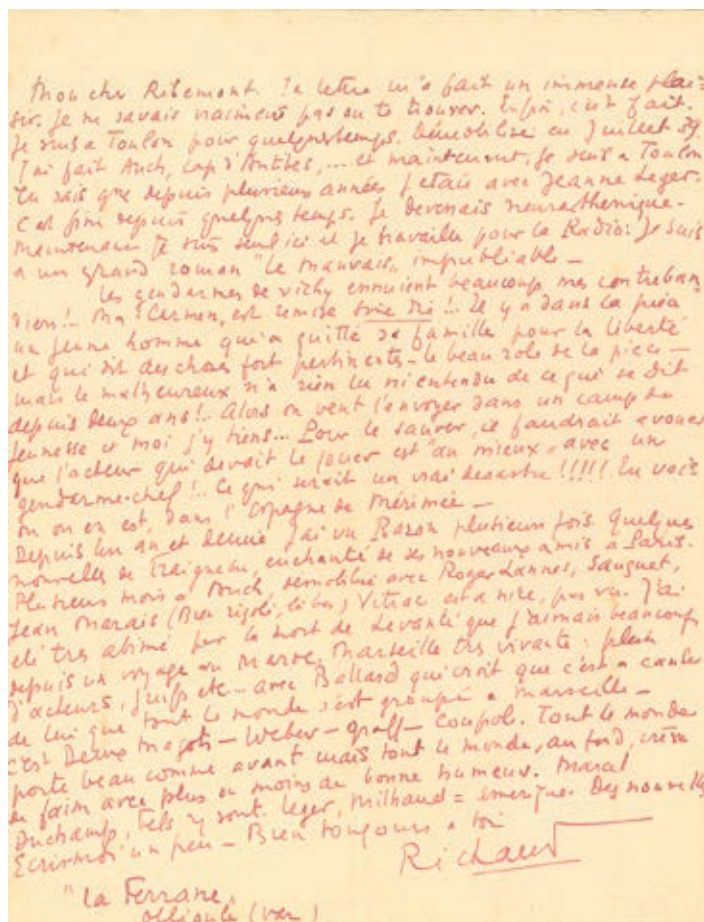 Mon cher Ribemont. Ta lettre m'a fait un immense plai=
sir. Je ne savais vraiment pas où te trouver. Enfin, c'est fait.
Je suis à Toulon pour quelques temps. Démobilisé en Juillet
J'ai fait Auch, Cap d'Antibes, ... et maintenant, je suis à Toulon
Tu sais que depuis plusieurs années j'étais avec Jeanne Leger.
C'est fini depuis quelques temps. Je devenais neurasthenique.
Maintenant je suis seul ici et je travaille pour la Radio: Je suis
à un grand roman "Le Mauvais" impubliable —
Les gendarmes de Vichy ennuient beaucoup mes contreban
diers!.. Ma "Carmen" est remise sine die!.. Il y a dans la pièce
un jeune homme qui a quitté sa famille pour la liberté
et qui dit des choses fort pertinentes — le beau role de la pièce —
mais le malheureux n'a rien lu ni entendu de ce qui se dit
depuis deux ans!.. Alors on veut l'envoyer dans un camp de
Jeunesse et moi j'y tiens... Pour le sauver, il faudrait avouer
que l'acteur qui devait le jouer est "au mieux" avec un
gendarme-chef!.. Ce qui serait un vrai desastre!!!!! Tu vois
où on en est, dans l'Espagne de Mérimée —
Depuis un an et demie j'ai vu Baron plusieurs fois. Quelques
nouvelles de enchanté de ses nouveaux amis à Paris.
Plusieurs mois à Auch, demobilisé avec Roger Lannes, Sauguet,
Jean Marais (Bien rigoli, ) Vitrac est à Nice, pas vu. J'ai
été très abimé par la mort de Levanti que j'aimais beaucoup
depuis un voyage au Maroc. Marseille très vivante; plein
d'acteurs, juifs etc — avec Ballard qui croit que c'est à cause
de lui que tout le monde s'est groupé à Marseille —
C'est Deux Magots — Weber — Graff — Coupole. Tout le monde
porte beau comme avant mais tout le monde, au fond, crève
de faim avec plus ou moins de bonne humeur. Marcel
Duchamp, y sont. Leger, Milhaud = Amerique. Des nouvelles
Ecris moi un peu — Bien toujours à toi
Richaud
"La Ferrane"
Ollioules (Var)